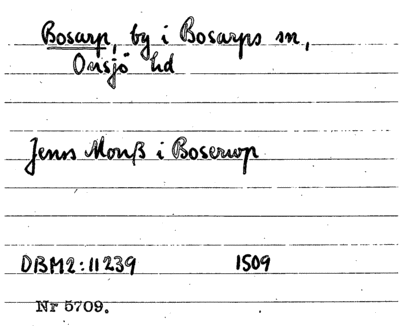 Bosarp, by i Bosarps sn,
Onsjö hd
Jenss Monß i Boserup
DBM2:11239 1509
Nr 5709.